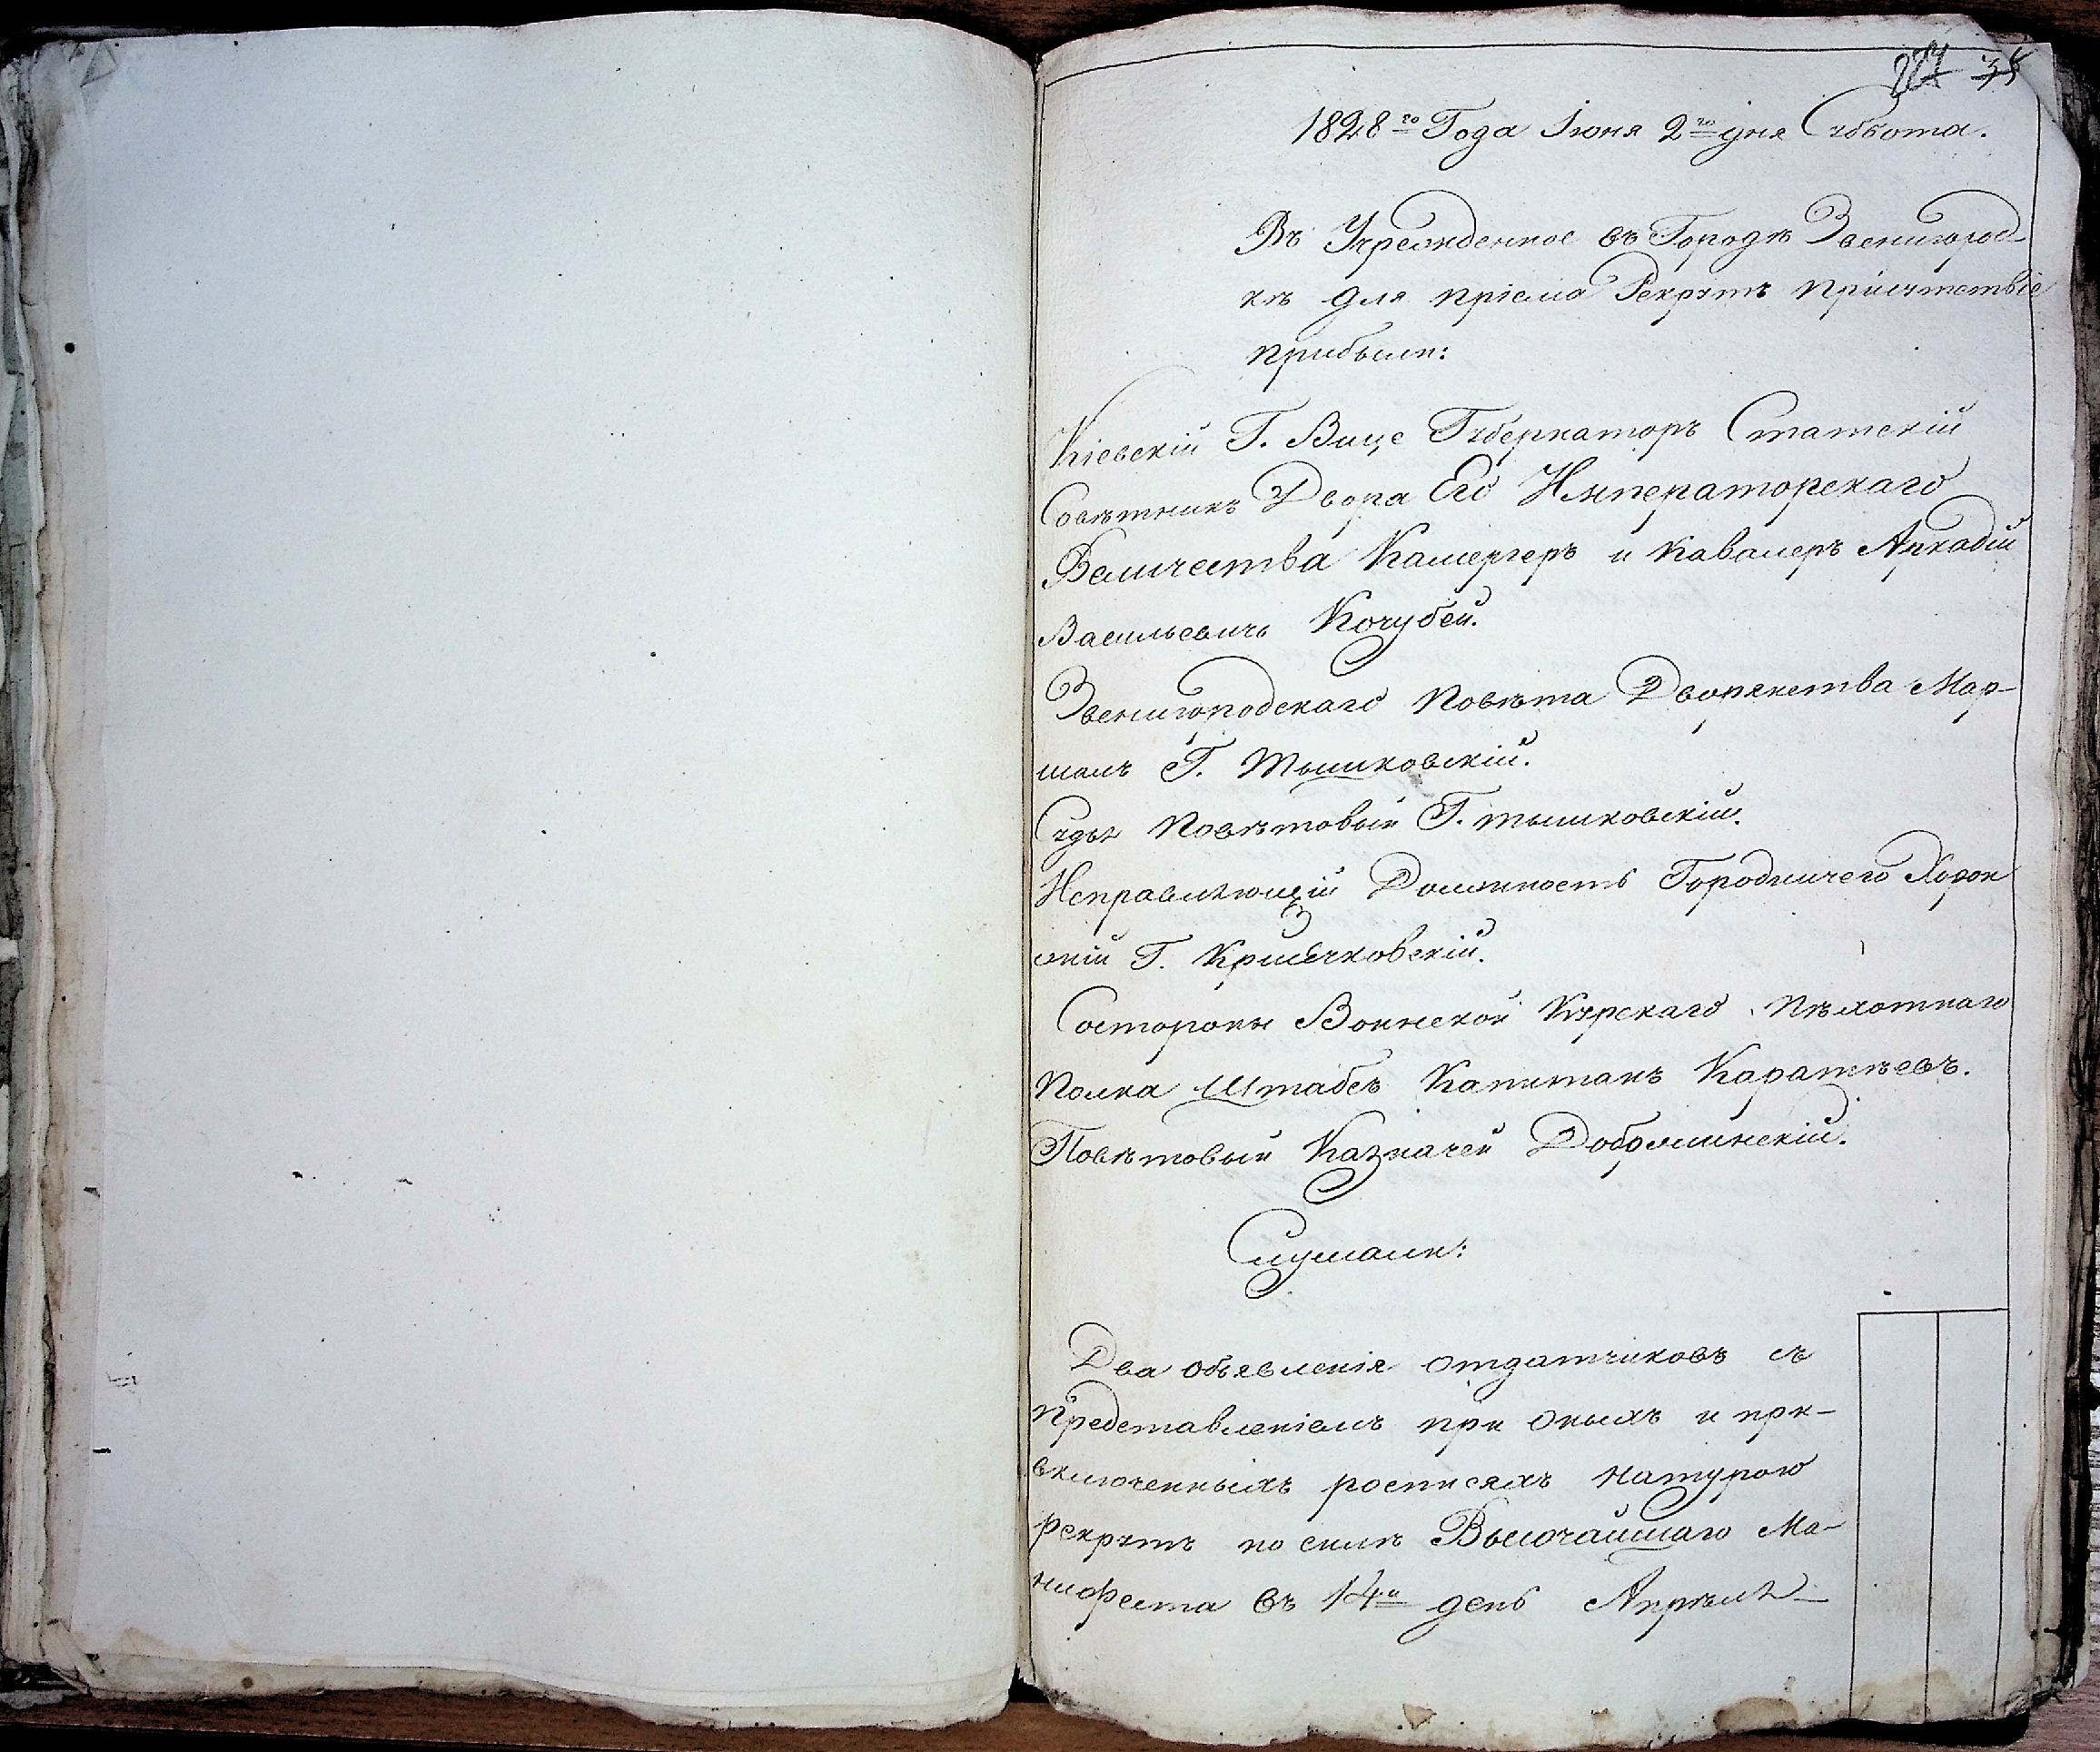 1828го Года Іюня 2го дня Суббота.
Въ Учрежденное въ Городѣ Звенигород-
кѣ для пріема Рекрутъ присутствіе
прибыли:
Кіевскій Г. Вице Губернаторъ Статскій
Совѣтникъ Двора Его Императорскаго
Величества Камергеръ и Кавалеръ Аркадій
Васильевичъ Кочубей.
Звенигородскаго Повѣта Дворянства Мар-
шалъ Г. Тышковскій.
Судья Повѣтовый Г. тышковскій.
Исправляющій Должность Городничего Хорон
жій Г.
Состороны Воинской Курскаго Пѣхотнаго
Полка Штабсъ Капитанъ Каратѣевъ.
Повѣтовый Казначей
Слушали:
Два объявленія отдатчиковъ съ
представленіемъ при оныхъ и при-
включенныхъ росписяхъ натурою
рекрутъ по силѣ Высочайшаго Ма-
нифеста въ 14й день Апрѣля